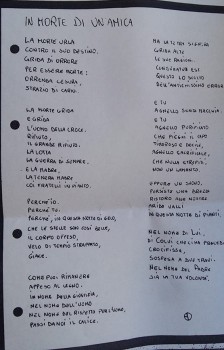 IN MORTE DI UN'AMICA
LA MORTE URLA
CONTRO IL SUO DESTINO.
GRIDA DI ORRORE
PER ESSERE MORTE:
ORRENDA CESURA,
STRAZIO DI CARIO.
LA MORTE GRIDA
E GRIDA
L'UOMO DELLA CROCE.
RIFIUTO,
IL GRANDE RIFIUTO.
LA LOTTA
LA GUERRA DI SEMPRE.
E LA MADRE
LA TENERA MADRE
COI FRATELLI IN PIANTO.
PERCHÉ IO.
PERCHÉ TU.
PERCHÉ, IN QUESTA NOTTE DI GELO,
CHE LE STELLE SON COSÌ BELLE,
IL CORPO OFFESO,
VELO DI TEMPIO STRAPPATO,
GIACE.
COME PUOI RIMANERE
APPESO AL LEGNO.
IN NOME DELLA GIUSTIZIA,
NEL NOME DELL'UOMO
NEL NOME DEL RISPETTO PER L'UOMO,
PASSI DANDO IL CALICE.
MA LA TERRA
GRIDA ALTE
LE SUE RAGIONI.
CONDANNATA SEI
QUESTO LO
E TU
AGNELLO SENZA MACCHIA
E TU
AGNELLO
CHE PIEGHI IL CAPO
TIMOROSO E DOCILE,
AGNELLO SACRIFICALE,
CHE NULLA
NON UN LAMENTO.
EPPURE UN SEGNO,
RISTORO ALLE NOSTRE
ARIDE VALLI
IN QUESTA NOTTE DI PIANTI.
NEL NOME DI LUI,
DI COLUI CHE
CROCIFISSA,
SOSPESA A DUE TRAVI.
NEL NOME DEL PADRE
SIA LA TUA VOLONTÀ.